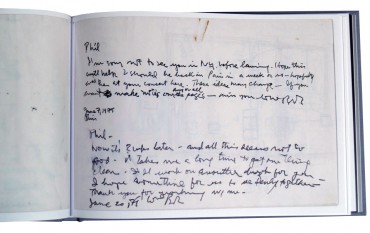 Phil
I'm sorry not to see you in NY, before leaving. Hope this
will help. I should be back in Paris in a week or so – hopefully
will be at your concert here. These ideas may change – if you
want to make notes on the pages –
June 7, 1975
Paris
Phil –
now it's 2 wks later – and all this seems not so
good. – It takes me a long time to get one thing
clean. I'll work on another draft for you
I hope something for us to do
Thank you for working w/ me –
June 20 75